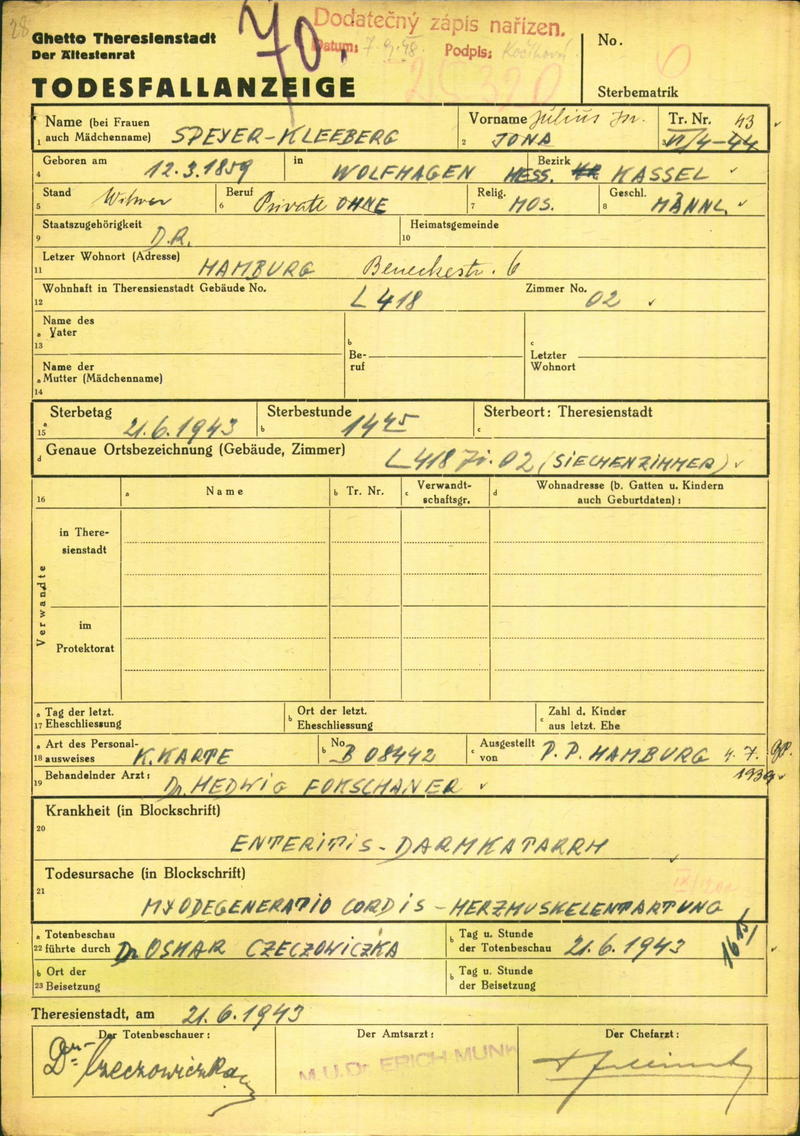 28
70.
Dodatečný zápis nařízen.
Datum: 7.9.48. Podpis:
Ghetto Theresienstadt
Der Ältestenrat
TODESFALLANZEIGE
No.
Sterbematrik
Name (bei Frauen
1 auch Mädchenname) SPEYER-KLEEBERG
Vorname Julius Isr.
2 JONA
Tr. Nr. 43
VI/4-44
Geboren am
4 12.3.1859 in WOLFHAGEN HESS. Bezirk KASSEL
Stand
5 Witwer
Beruf
6 Private OHNE
Relig.
7 MOS.
Geschl.
8 MÄNNL.
Staatszugehörigkeit
9 D.R.
Heimatsgemeinde
10
Letzer Wohnort (Adresse)
11 HAMBURG Beneckestr. 6
Wohnhaft in Theresienstadt Gebäude No. L 418 Zimmer No. 02
12
Name des
a Vater
13
b
Be-
ruf
c
Letzter
Wohnort
Name der
a Mutter (Mädchenname)
14
Sterbetag
a 15 21.6.1943
Sterbestunde
b 14 45
Sterbeort: Theresienstadt
c
d Genaue Ortsbezeichnung (Gebäude, Zimmer) L 418 Zi. 02 (SIECHENZIMMER)
16 a Name b Tr. Nr. c Verwandt-
schaftsgr. d Wohnadresse (b. Gatten u. Kindern
auch Geburtdaten):
Verwandte
in There-
sienstadt
im
Protektorat
a Tag der letzt.
17 Eheschliessung
b Ort der letzt.
Eheschliessung
c Zahl d. Kinder
aus letzt. Ehe
a Art des Personal-
18 ausweises K.KARTE
b No. B 08442
c Ausgestellt
von P.P. HAMBURG 4.7.
1939
19 Behandelnder Arzt: Dr. HEDWIG FOKSCHANER
Krankheit (in Blockschrift)
20
ENTERITIS - DARMKATARRH
Todesursache (in Blockschrift)
21
MYODEGENERATIO CORDIS - HERZMUSKELENTARTUNG
a Totenbeschau
22 führte durch Dr. OSKAR CZECZOWICZKA
b Tag u. Stunde
der Totenbeschau 21.6.1943
b Ort der
23 Beisetzung
b Tag u. Stunde
der Beisetzung
Theresienstadt, am 21.6.1943
Der Totenbeschauer:
Dr. Czeczowiczka
Der Amtsarzt:
M.U.Dr. ERICH MUNK
Der Chefarzt: